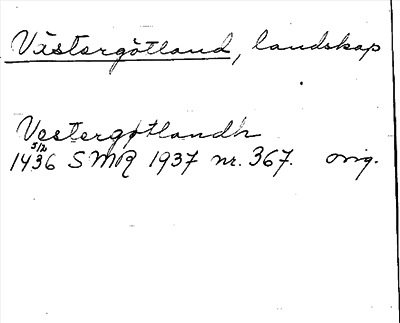 Västergötland, landskap
Vestergøtlandh
5/2
1436 SMR 1937 nr. 367. orig.